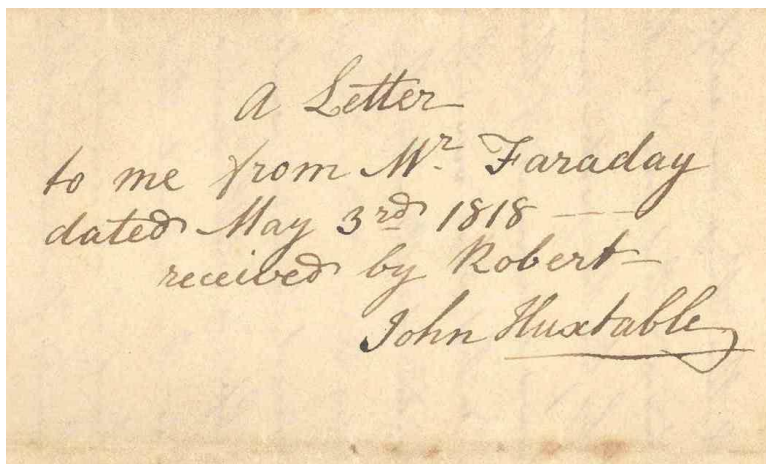 A Letter
to me from Mr. Faraday
dated May 3rd 1818 —
received by Robert
John Huxtable